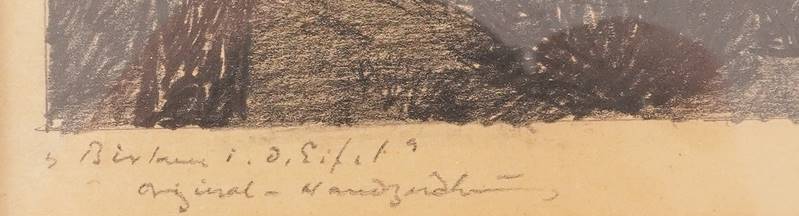 „Birken i. d. Eifel“
Original-Handzeichnung